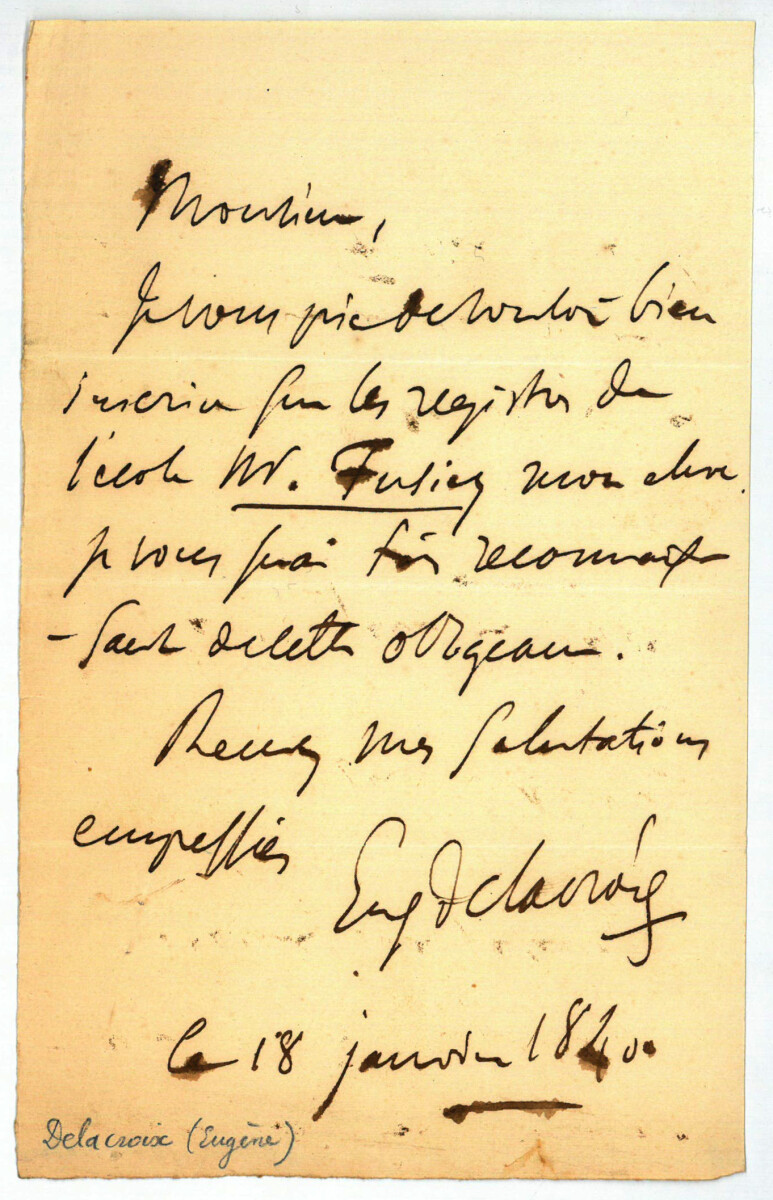 Monsieur,
Je vous prie de vouloir bien
inscrire sur les registres de
l'école Mr.
mon eleve.
je vous serai très reconnais
-sant de cette obligeance.
Recevez mes salutations
empressées
Eug Delacroix
le 18 janvier 1840.
Delacroix (Eugène)